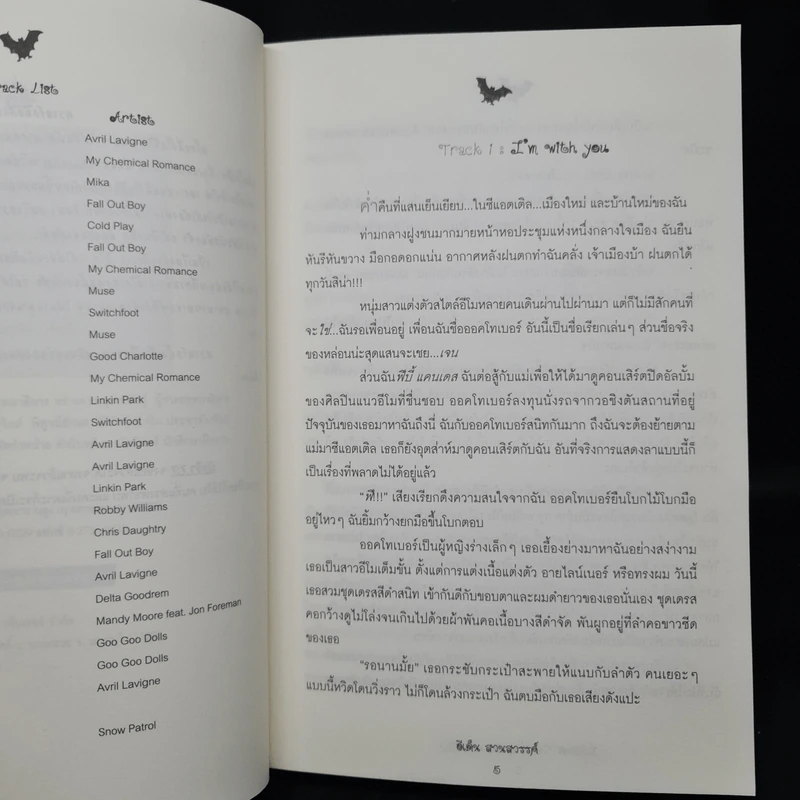 Track List
Artist
Avril Lavigne
My Chemical Romance
Mika
Fall Out Boy
Cold Play
Fall Out Boy
My Chemical Romance
Muse
Switchfoot
Muse
Good Charlotte
My Chemical Romance
Linkin Park
Switchfoot
Avril Lavigne
Avril Lavigne
Linkin Park
Robby Williams
Chris Daughtry
Fall Out Boy
Avril Lavigne
Delta Goodrem
Mandy Moore feat. Jon Foreman
Goo Goo Dolls
Goo Goo Dolls
Avril Lavigne
Snow Patrol
Track 1 : I'm with you
ค่ำคืนที่แสนเย็นเยียบ...ในซีแอตเติล...เมืองใหม่ และบ้านใหม่ของฉัน
ท่ามกลางฝูงชนมากมายหน้าหอประชุมแห่งหนึ่งกลางใจเมือง ฉันยืน
หันรีหันขวาง มือกอดอกแน่น อากาศหลังฝนตกทำฉันคลั่ง เจ้าเมืองบ้า ฝนตกได้
ทุกวันสิน่า!!!
หนุ่มสาวแต่งตัวสไตล์อีโมหลายคนเดินผ่านไปผ่านมา แต่ก็ไม่มีสักคนที่
จะใช่...ฉันรอเพื่อนอยู่ เพื่อนฉันชื่อออคโทเบอร์ อันนี้เป็นชื่อเรียกเล่นๆ ส่วนชื่อจริง
ของหล่อนน่ะสุดแสนจะเชย...เจน
ส่วนฉันฟีบี้ แคนเดส ฉันต่อสู้กับแม่เพื่อให้ได้มาดูคอนเสิร์ตปิดอัลบั้ม
ของศิลปินแนวอีโมที่ชื่นชอบ ออคโทเบอร์ลงทุนนั่งรถจากวอชิงตันสถานที่อยู่
ปัจจุบันของเธอมาหาฉันถึงนี่ ฉันกับออคโทเบอร์สนิทกันมาก ถึงฉันจะต้องย้ายตาม
แม่มาซีแอตเติล เธอก็ยังอุตส่าห์มาดูคอนเสิร์ตกับฉัน อันที่จริงการแสดงลาแบบนี้ก็
เป็นเรื่องที่พลาดไม่ได้อยู่แล้ว
"ฟี!!" เสียงเรียกดึงความสนใจจากฉัน ออคโทเบอร์ยืนโบกไม้โบกมือ
อยู่ไหวๆ ฉันยิ้มกว้างยกมือขึ้นโบกตอบ
ออคโทเบอร์เป็นผู้หญิงร่างเล็กๆ เธอเยื้องย่างมาหาฉันอย่างสง่างาม
เธอเป็นสาวอีโมเต็มขั้น ตั้งแต่การแต่งเนื้อแต่งตัว อายไลน์เนอร์ หรือทรงผม วันนี้
เธอสวมชุดเดรสสีดำสนิท เข้ากันดีกับขอบตาและผมดำยาวของเธอนั่นเอง ชุดเดรส
คอกว้างดูไม่โล่งจนเกินไปด้วยผ้าพันคอเนื้อบางสีดำจัด พันผูกอยู่ที่ลำคอขาวซีด
ของเธอ
"รอนานมั้ย" เธอกระชับกระเป๋าสะพายให้แนบกับลำตัว คนเยอะๆ
แบบนี้หวิดโดนวิ่งราว ไม่ก็โดนล้วงกระเป๋า ฉันตบมือกับเธอเสียงดังแปะ
ฮีเด็น สวนสวรรค์
5